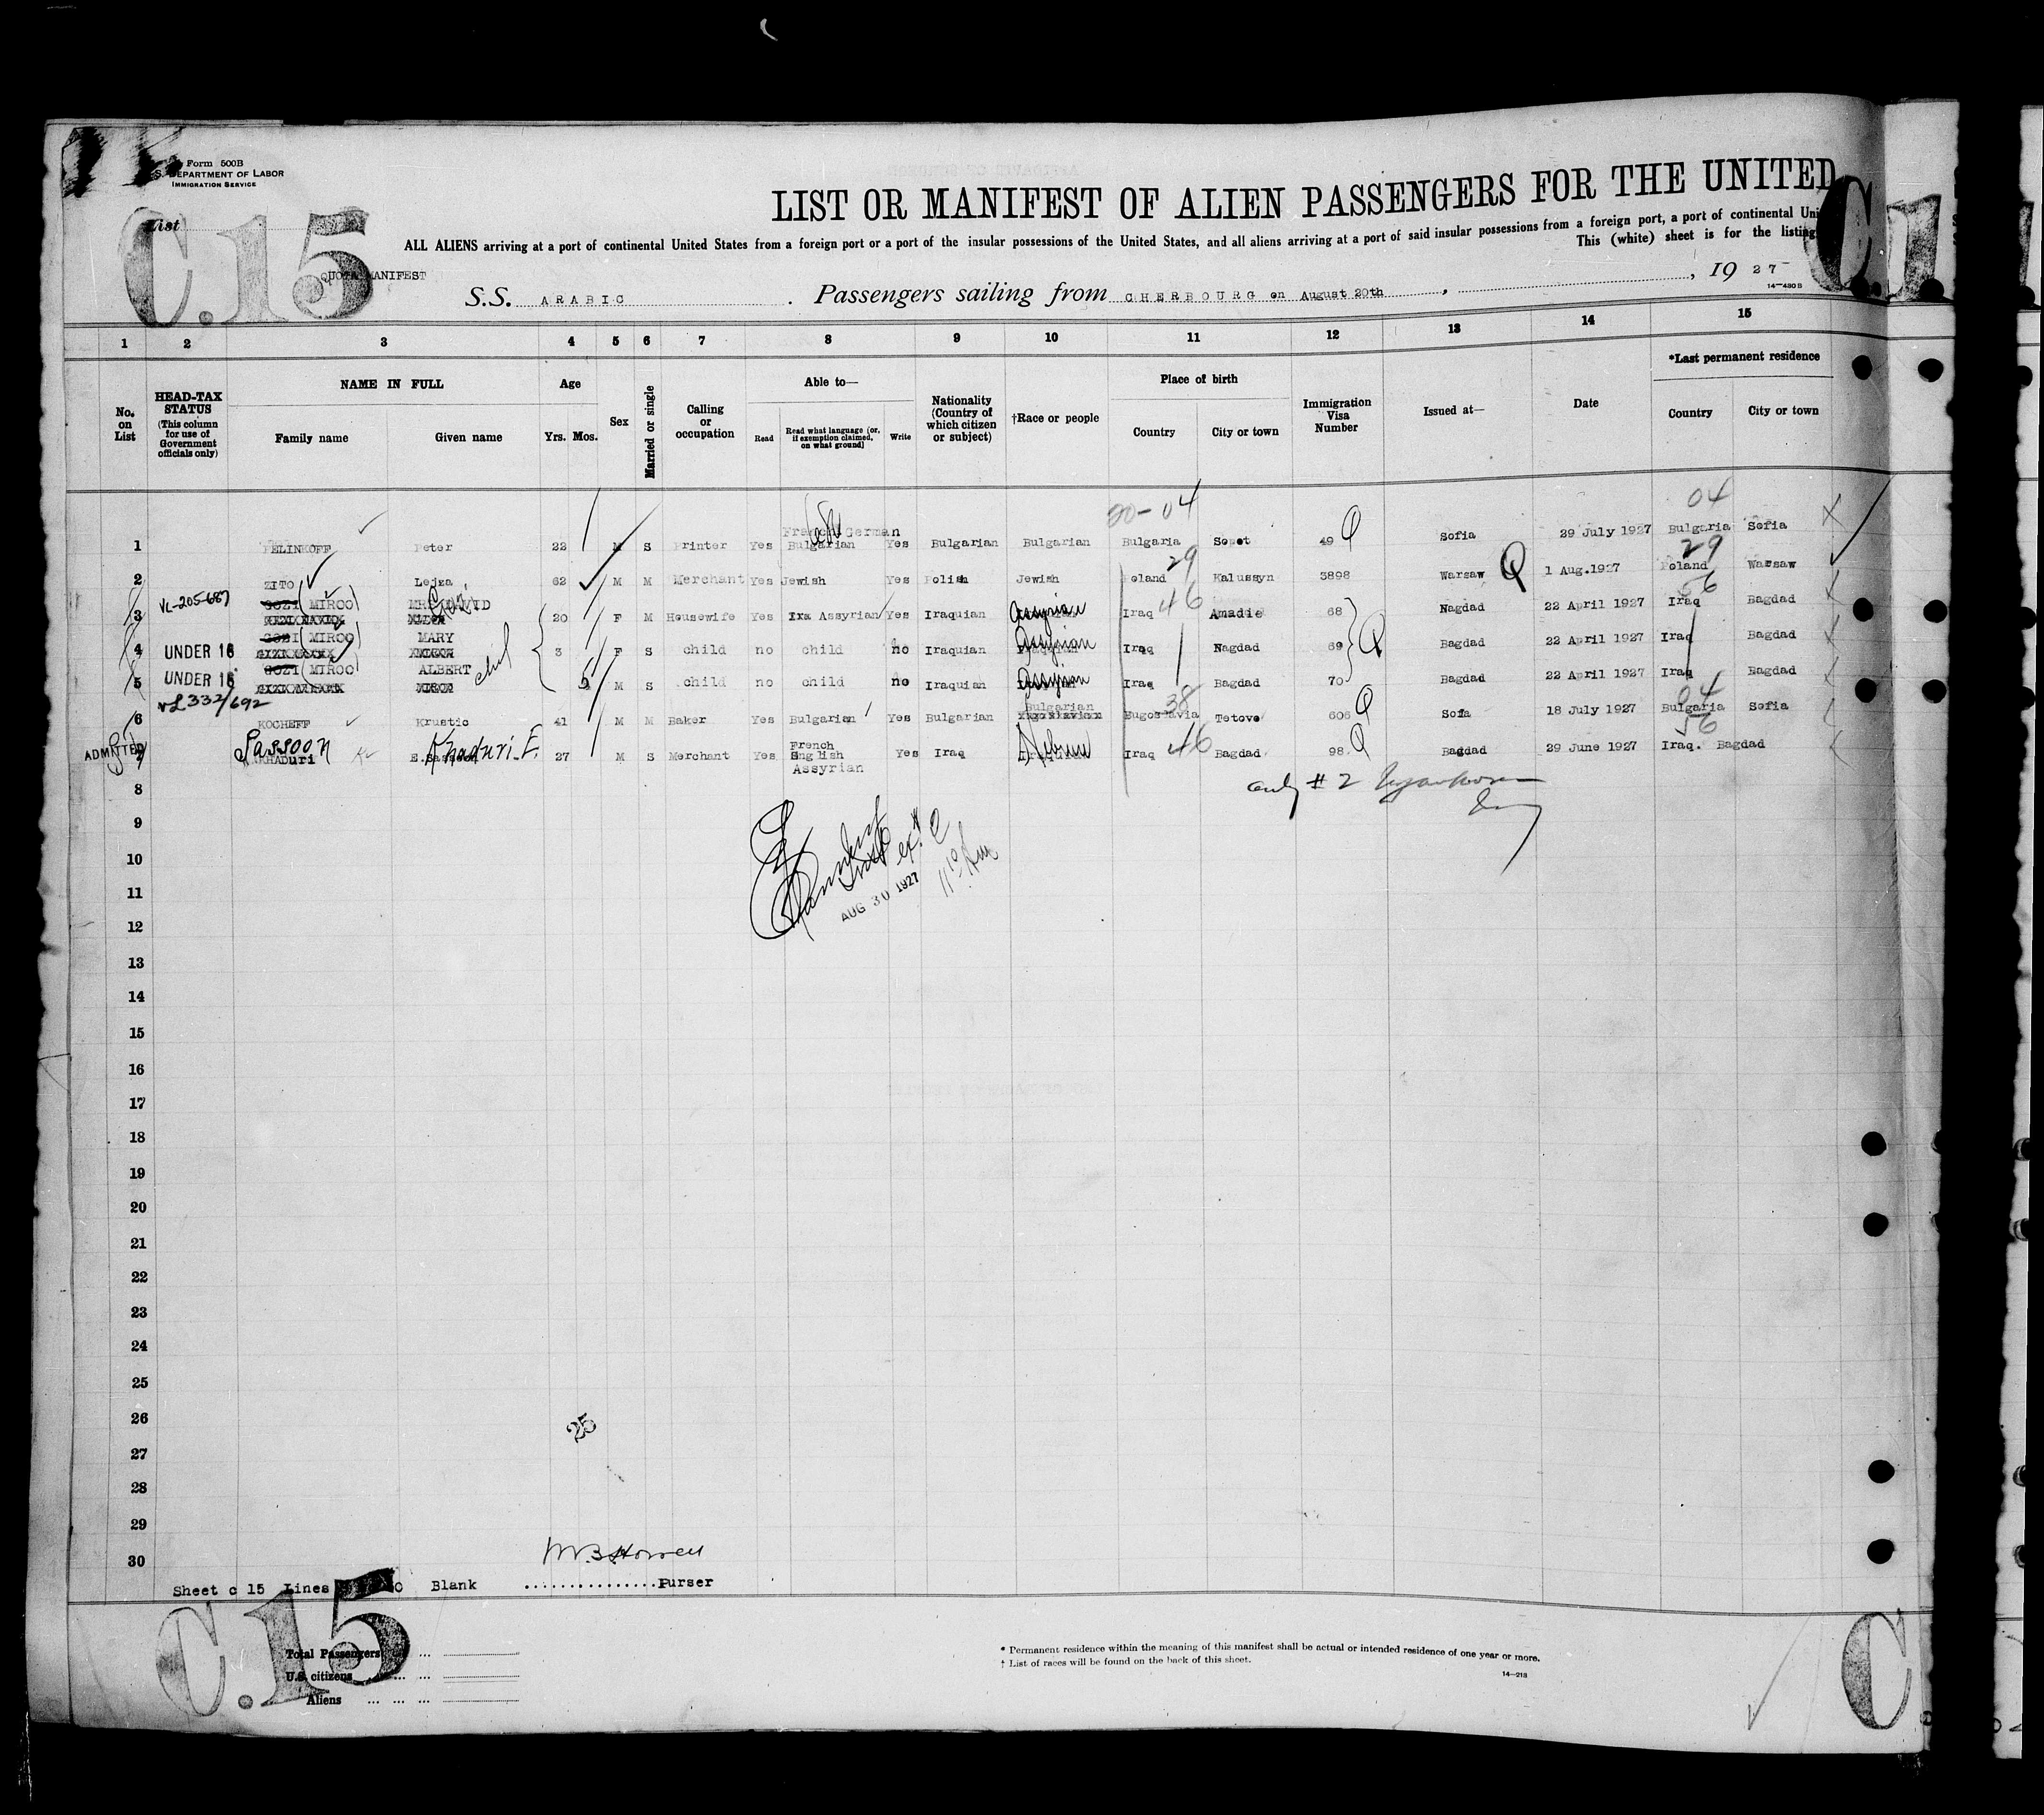 Form 500B
U.S. DEPARTMENT OF LABOR
IMMIGRATION SERVICE
List
C.15
QUOTA MANIFEST
LIST OR MANIFEST OF ALIEN PASSENGERS FOR THE UNITED
ALL ALIENS arriving at a port of continental United States from a foreign port or a port of the insular possessions of the United States, and all aliens arriving at a port of said insular possessions from a foreign port, a port of continental Uni
This (white) sheet is for the listing
S.S. ARABIC. Passengers sailing from CHERBOURG on August 20th, 19 27
14—480 B
1 2 3 4 5 6 7 8 9 10 11 12 13 14 15
No. on List
HEAD-TAX STATUS (This column for use of Government officials only)
NAME IN FULL
Family name Given name
Age
Yrs. Mos.
Sex
Married or single
Calling or occupation
Able to—
Read Read what language (or, if exemption claimed, on what ground) Write
Nationality (Country of which citizen or subject)
†Race or people
Place of birth
Country City or town
Immigration Visa Number
Issued at—
Date
*Last permanent residence
Country City or town
20-04 04
French German
1 FELINKOFF Peter 22 M S Printer Yes Bulgarian Yes Bulgarian Bulgarian Bulgaria Sopot 49 Q Sofia 29 July 1927 Bulgaria Sofia
29 29
2 ZITO Lejza 62 M M Merchant Yes Jewish Yes Polish Jewish Poland Kalussyn 3898 Warsaw Q 1 Aug.1927 Poland Warsaw
VL-205-687
3 GOZI (MIROO) MRS DAVID 20 F M Housewife Yes Assyrian Yes Iraquian Assyrian Iraq 46 Amadie 68 Nagdad 22 April 1927 Iraq Bagdad
4 UNDER 16 GOZI (MIROO) MARY 3 F S child no child no Iraquian Assyrian Iraq Nagdad 69 Q Bagdad 22 April 1927 Iraq Bagdad
5 UNDER 16 GOZI (MIROO) ALBERT 5 M S child no child no Iraquian Assyrian Iraq Bagdad 70 Bagdad 22 April 1927 Iraq Bagdad
VL 332/692
Bulgarian 38 04
6 KOCHEFF Krustic 41 M M Baker Yes Bulgarian Yes Bulgarian Eugoslavia Tetovo 606 Q Sofa 18 July 1927 Bulgaria Sofia
ADMITTED Sassoon Khaduri. E. French 56
7 KHADuri E.Sassoon 27 M S Merchant Yes English Yes Iraq Hebrew Iraq 46 Bagdad 98. Q Bagdad 29 June 1927 Iraq. Bagdad
Assyrian
8 only # 2
9
10
11 AUG 30 1927
12
13
14
15
16
17
18
19
20
21
22
23
24
25
26 25
27
28
29
30
Sheet c 15 Lines Blank ...............Purser
C.15
Total Passengers
U.S. citizens
Aliens
* Permanent residence within the meaning of this manifest shall be actual or intended residence of one year or more.
† List of races will be found on the back of this sheet.
14—218